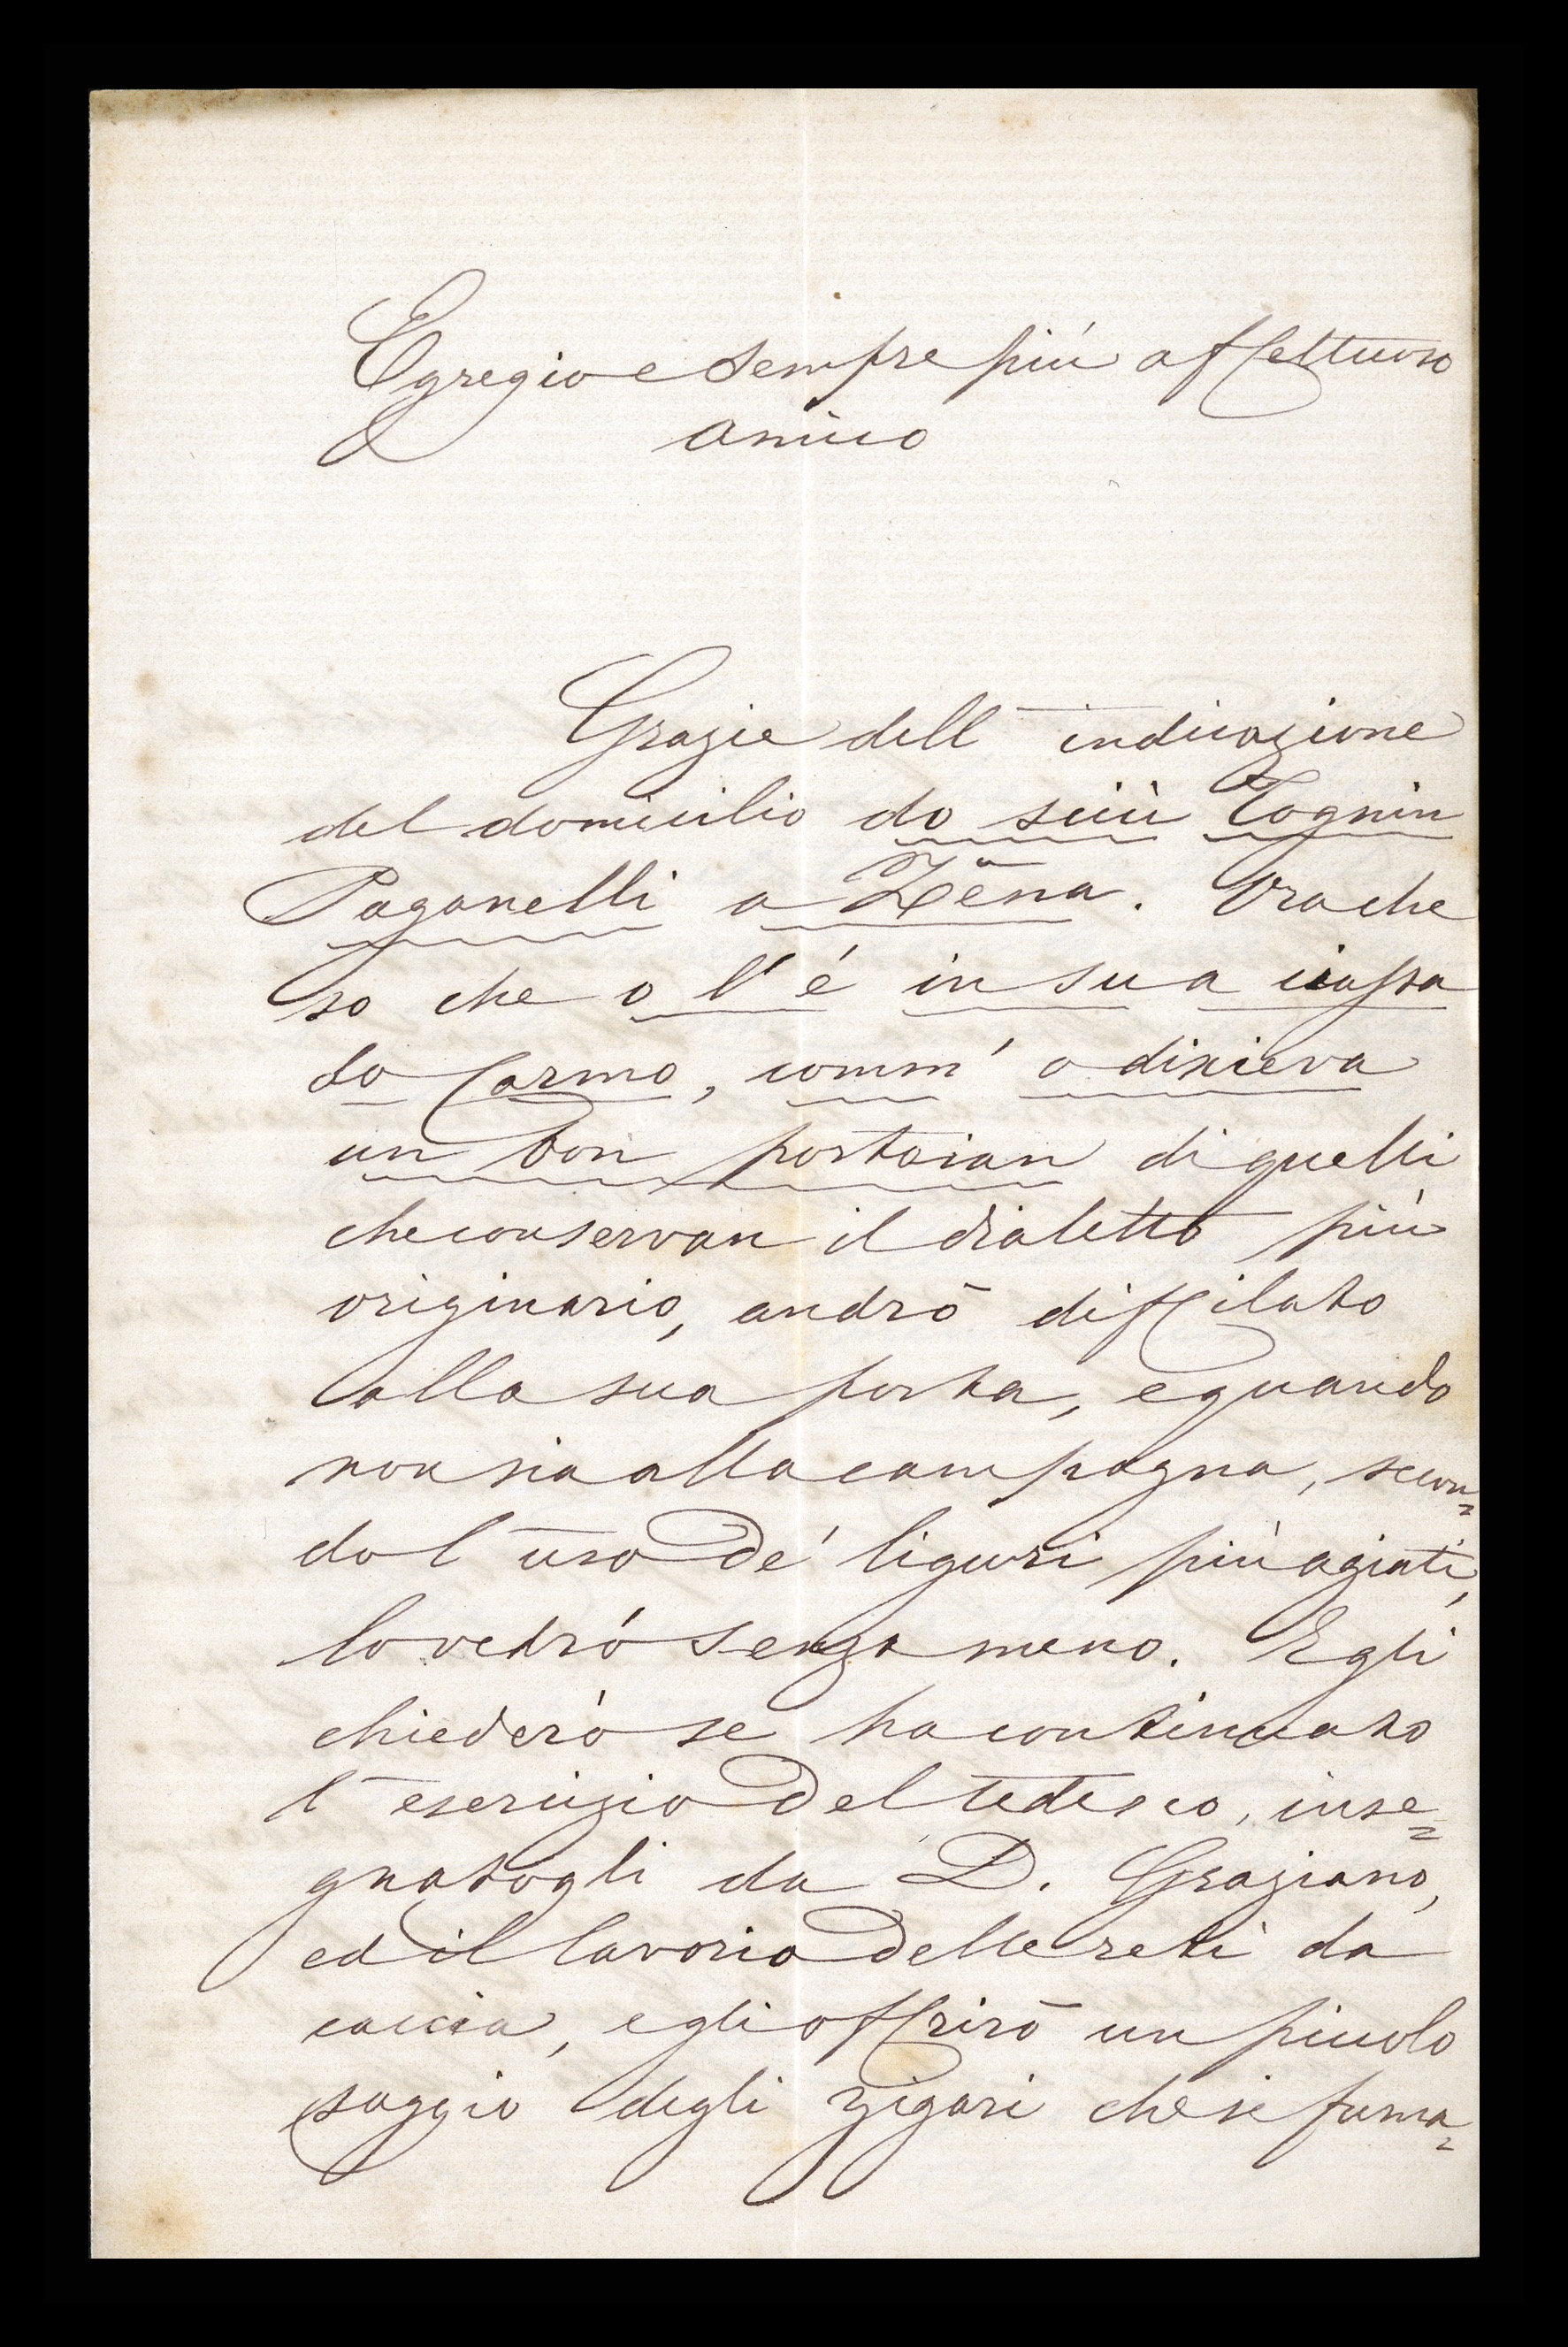 Egregio e sempre più affettuoso
amico
Grazie dell'indicazione
del domicilio do sciù Tognin
Paganelli a Zêna. Ora che
so che o l'é in sua ciassa
do Carmo, comm' o dixieva
un bon portoian di quelli
che conservan il dialetto più
originario, andrò diffilato
alla sua porta, e quando
non sia alla campagna, secon=
do l'uso de' liguri più agiati,
lo vedrò senza meno. E gli
chiederò se ha continuato
l'esercizio del tedesco, inse=
gnatogli da D. Graziano,
ed il lavorio delle reti da
caccia, e gli offrirò un piccolo
saggio degli zigari che si fuma=